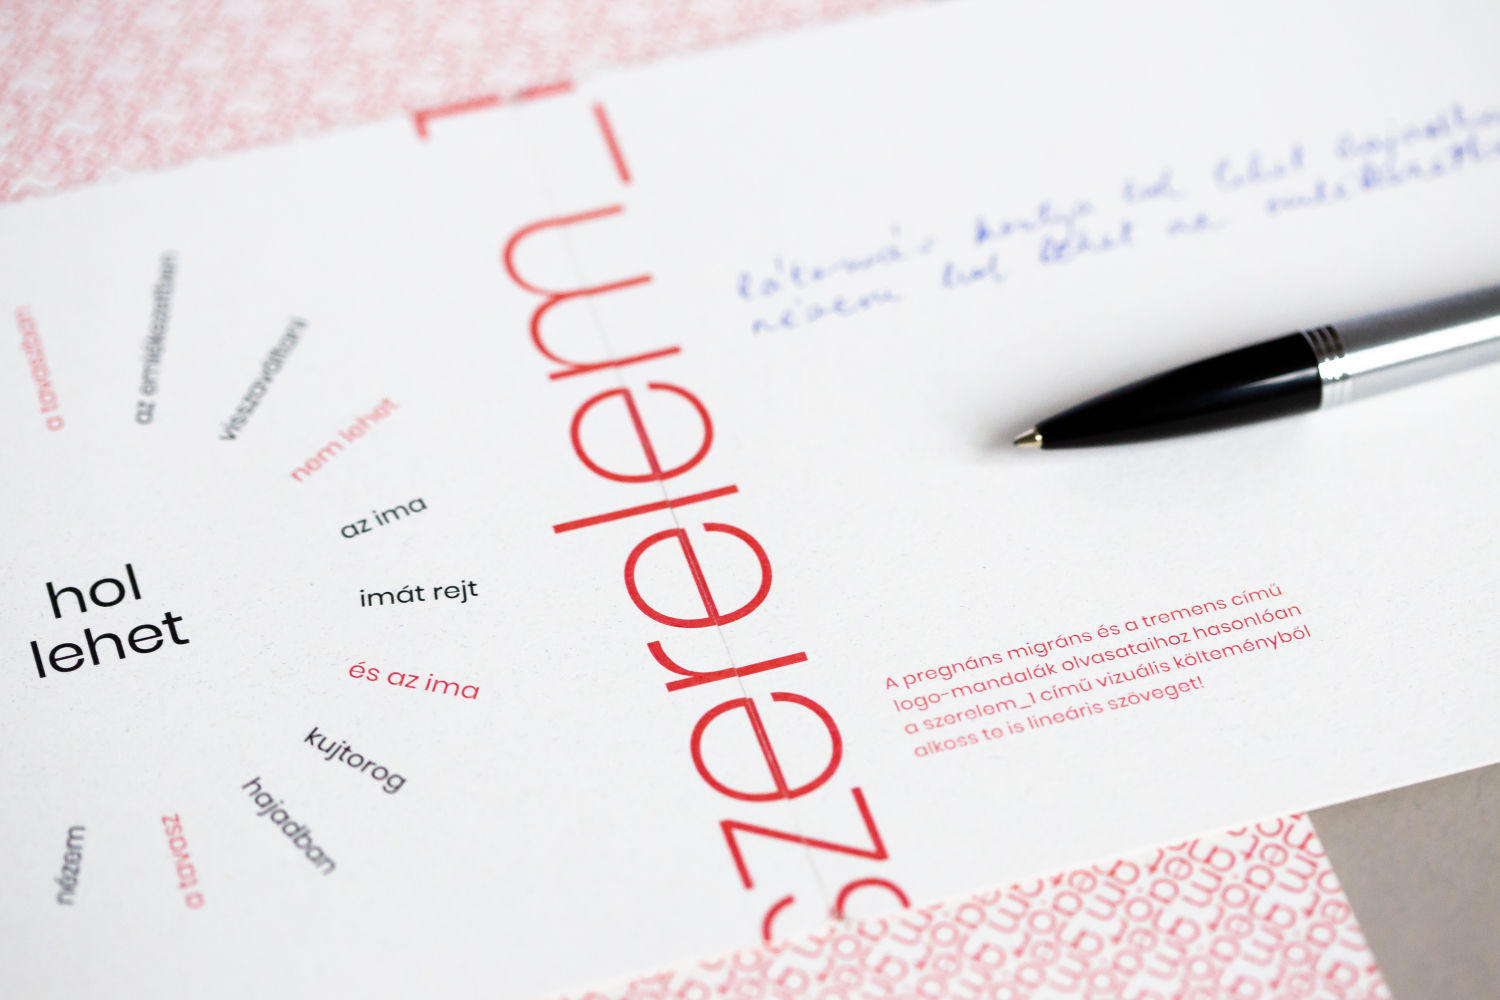 a tavaszban
az emlékezetben
visszaváltani
nem lehet
az ima
imát rejt
és az ima
kujtorog
hajadban
a tavasz
nézem
hol
lehet
szerelem_1
hol lehet
nézem hol lehet az
A pregnáns migráns és a tremens című
logo-mandalák olvasataihoz hasonlóan
a szerelem_1 című vizuális költeményből
alkoss te is lineáris szöveget!